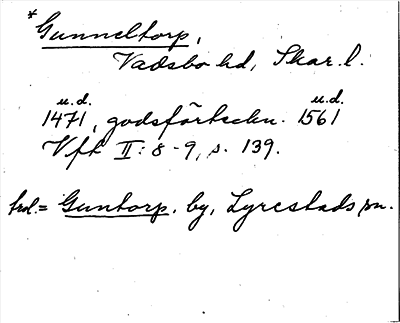 * Gunneltorp,
Vadsbo hd, Skar. l.
u.d. u.d.
1471, godsförteckn. 1561
Vft II: 8-9, s. 139.
trol. = Guntorp, by, Lyrestads sn.